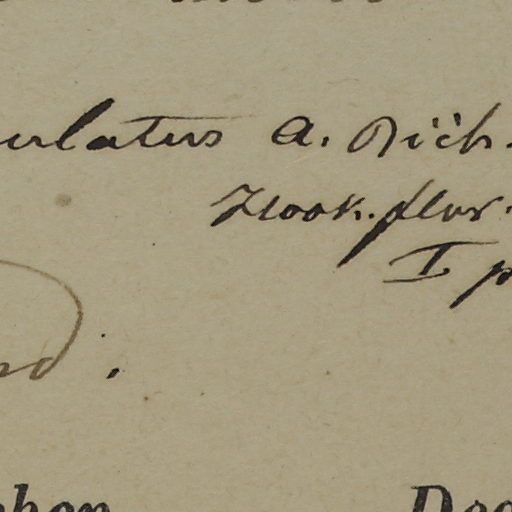 ulatus A. Rich.
Hook. flor.
I p
nd.
phen
Dec